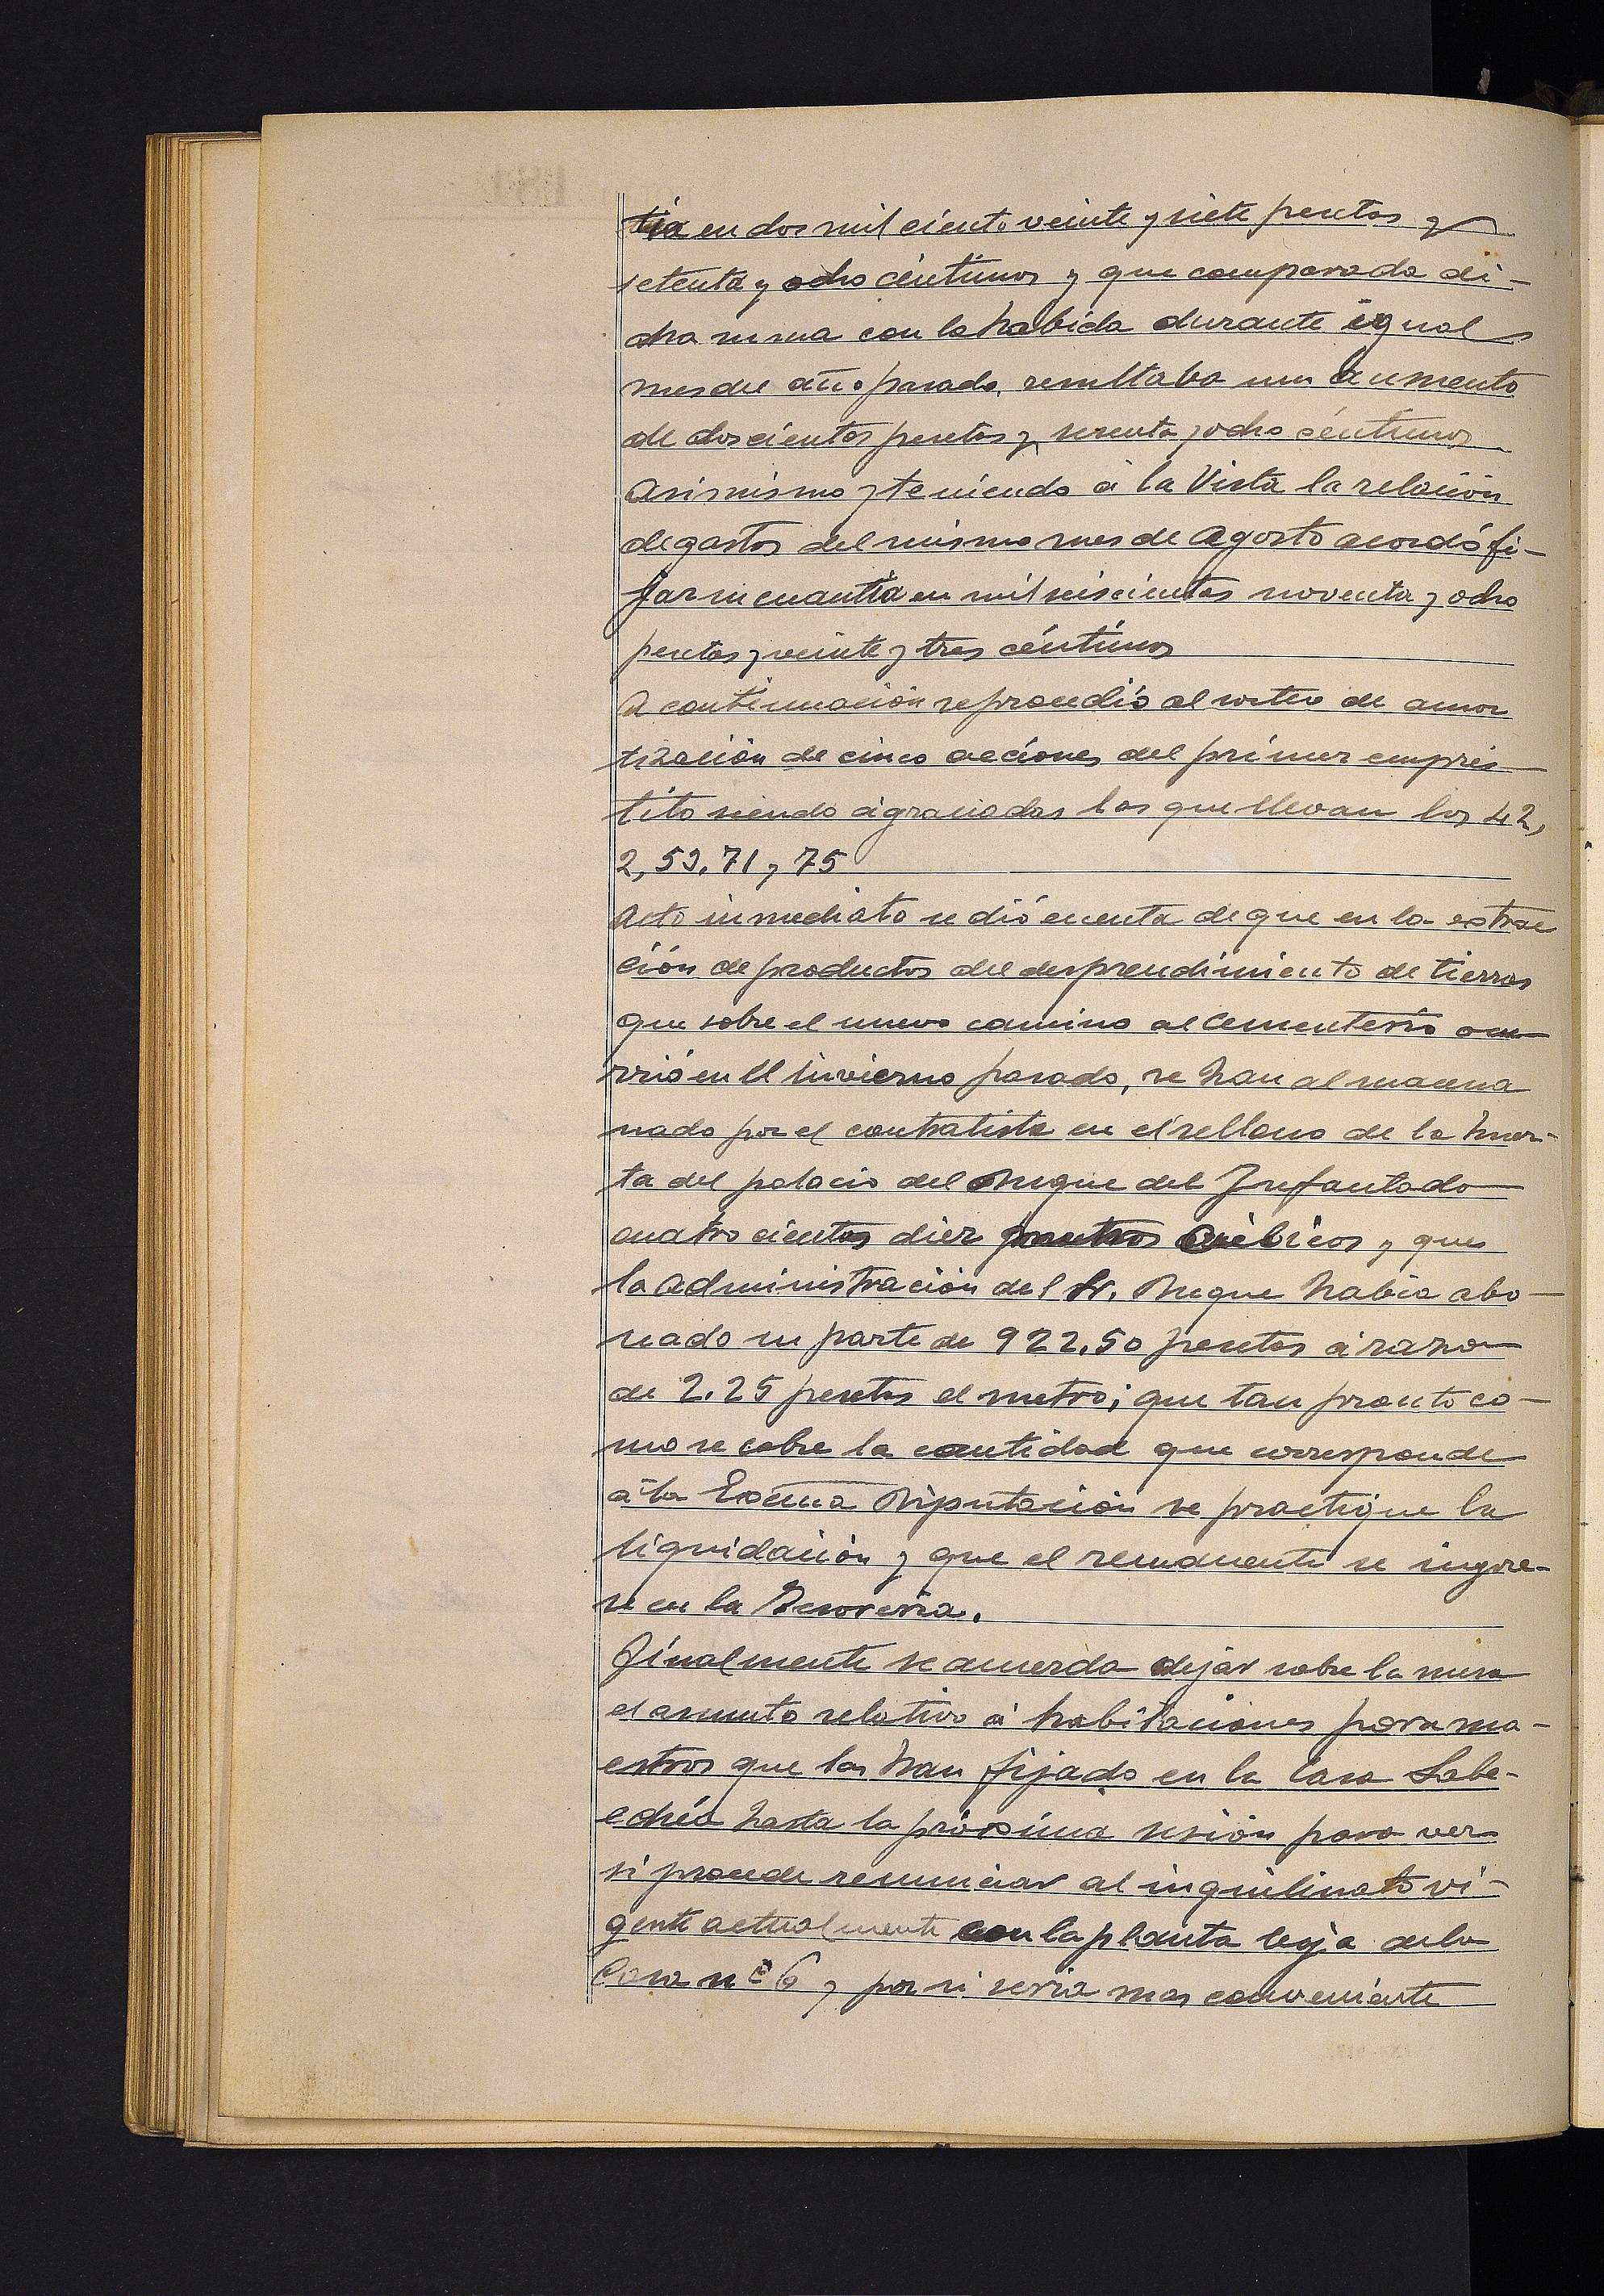 tia en dos mil ciento veinte y siete pesetas y
setenta y ocho céntimos y que comparada di-
cha suma con la habida durante igual
mes del año pasado, resultaba un aumento
de doscientas pesetas y sesenta y ocho céntimos
Asimismo y teniendo á la Vista la relación
de gastos del mismo mes de Agosto acordó fi-
jar su cuantia en mil seiscientas noventa y ocho
pesetas y veinte y tres céntimos
A continuación se procedió al sorteo de amor
tización de cinco acciones del primer emprés
tito siendo agraciadas las que llevan los 42,
2, 53. 71 y 75
Acto inmediato se dió cuenta de que en la extrac
ción de productos del desprendimiento de tierras
que sobre el nuevo camino al Cementerio ocu
rrió en el invierno pasado, se han almacena
nado por el contratista en el rellano de la huer-
ta del palacio del Duque del Infantado
cuatrocientos diez metros cúbicos y que
la administración del Sr. Duque habia abo-
nado su parte de 922.50 pesetas á razon
de 2.25 pesetas el metro; que tan pronto co-
mo se cobre la cantidad que corresponde
á la Excma Diputación se practique la
liquidación y que el remanente se ingre-
se en la Tesoreria.
Finalmente se acuerda dejar sobre la mesa
el asunto relativo á habitaciones para ma-
estros que las han fijado en la Casa
hasta la próxima sesión para ver
si procede renunciar al inquilinato vi-
gente actualmente con la planta baja de la
Casa nº 6 y por si seria mas conveniente